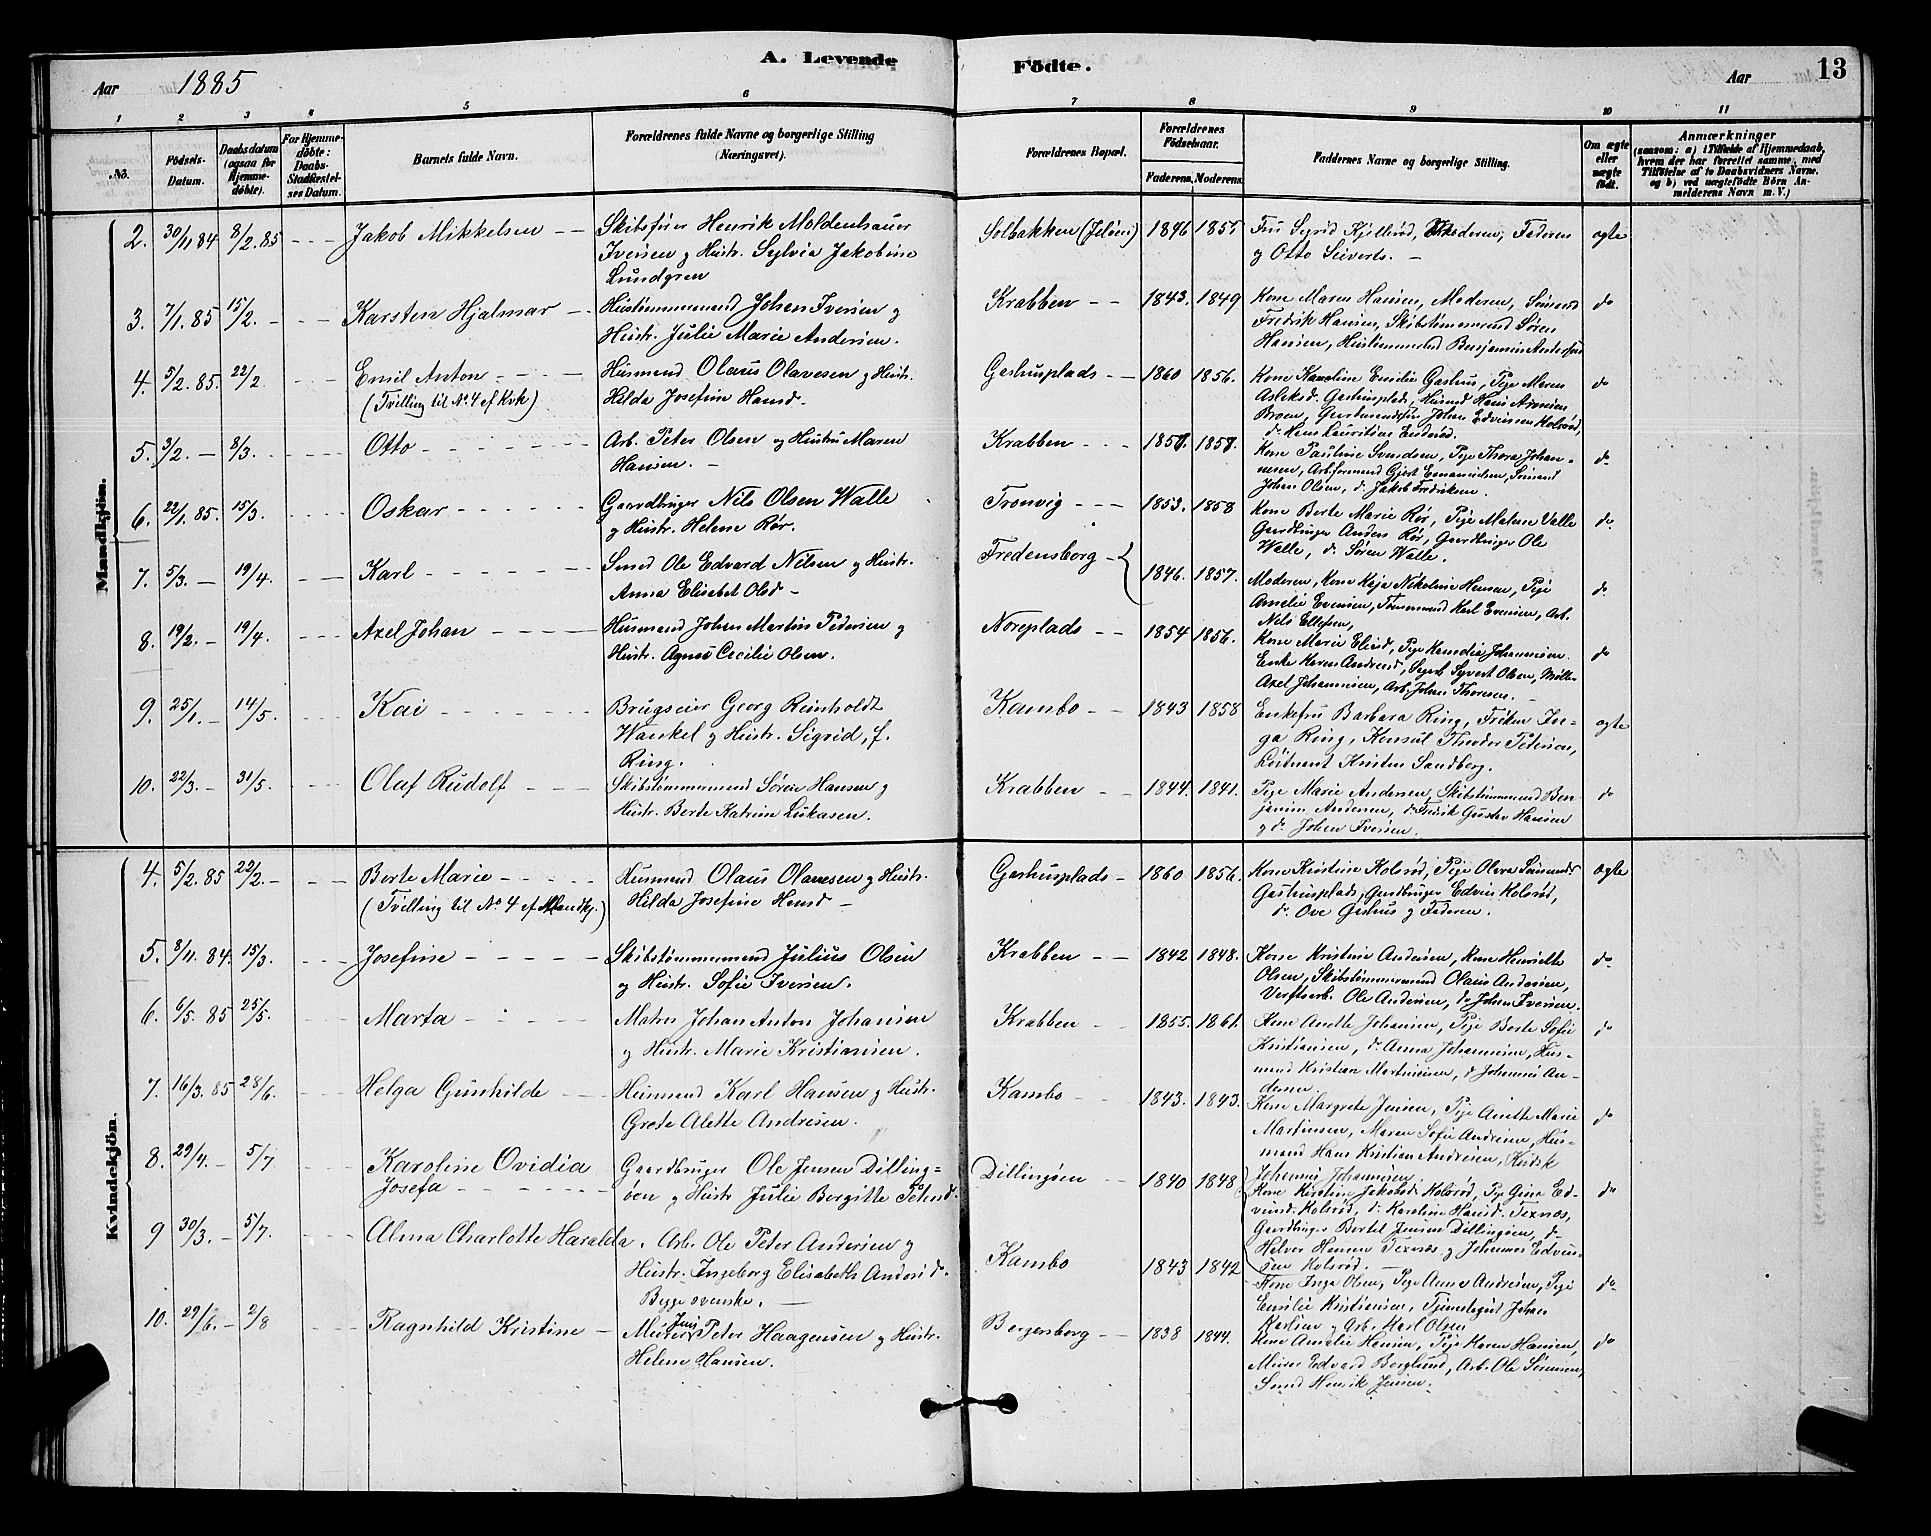 Aar 1885
A. Levende Födte.
Aar
13
1 2 3 4 5 6 7 8 9 10 11
No.
Födsels-Datum.
Daabsdatum (ogsaa for Hjemme-döbte).
For Hjemme-döbte: Daabs-Stadfæstel-ses Datum.
Barnets fulde Navn.
Forældrenes fulde Navne og borgerlige Stilling (Næringsvei).
Forældrenes Bopæl.
Forældrenes Födselsaar.
Faderens. Moderens.
Faddernes Navne og borgerlige Stilling.
Om ægte eller uægte födt.
Anmærkninger
(saasom: a) i Tilfælde af Hjemmedaab, hvem der har forrettet samme, med Tilföielse af to Daabsvidners Navne. og b) ved uægtefödte Börn An-melderens Navn m.V.)
Mandkjön.
2. 30/11 84 8/2. 85 Jakob Mikkelsen
Skibsfører Henrik Moldenhauer
Iversen og Hustr. Sylvia Jakobine
Lundgren
Solbakken (Jeløen) 1846 1855
Fru Sigrid Kjøllerød, Moderen, Faderen
og Otto Sieverts. ægte
3. 7/1. 85 15/2. Karsten Hjalmar
Hustømmermand Johan Iversen og
Hustr. Julie Marie Andersen.
Krabben 1843. 1849
Kone Maren Hansen, Moderen, Sømand
Fredrik Hansen, Skibstømmermand Søren
Hansen, Hustømmermand Benjamin Andersen do
4. 5/2. 85. 22/2 Emil Anton
(Tvilling til No. 4 af Kvk)
Husmand Olaus Olavesen og Hustr.
Hilda Josefine Hansd.
Gashusplads 1860 1856.
Kone Karoline Emilie Gashus, Pige Maren
Aslaksd. Gashusplads, Husmd Hans Aronsen
Broen, Gaardmandssøn Johan Edvinsen Kolsrød,
do Hans Lauritsen do
5. 3/2. 8/3. Otto
Arb. Peter Olsen og Hustru Maren
Hansen.
Krabben 1857. 1857.
Kone Pauline Svendsen, Pige Thora Johan-
nesen, Arbformand Gjert Emanuelsen, Sømand
Johan Olsen, do Jakob Fredriksen. do
6. 22/1. 85. 15/3. Oskar
Gaardbruger Nils Olsen Walle
og Hustr. Helene Rør.
Tronvig 1853. 1858
Kone Berte Marie Rør, Pige Maren Valle
Gaardbruger Anders Rør, Gaardbruger Ole
Walle, do Søren Walle. do
7. 5/3. 19/4. Karl
Smed Ole Edvard Nilsen og Hustr.
Anna Elisabet Olsd
Fredensborg 1846. 1857.
Moderen, Kone Kaja Nikoline Hansen, Pige
Amelie Evensen, Tømmermand Karl Evensen, Arb.
Nils Ellefsen, do
8. 19/2. 19/4. Axel Johan
Husmand Johan Martin Pedersen og
Hustr. Agnes Cecilie Olsen.
Noreplads 1854 1856.
Kone Marie Elisd, Pige Kamelia Johannesen
Enke Karen Andersd, Sagarb. Syvert Olsen, Møller
Axel Johannesen, Arb. Johan Thoresen. do
9. 25/1. 14/5. Kai
Brugseier Georg Reinholdt
Wankel og Hustr. Sigrid, f.
Ring.
Kambo 1843 1858
Enkefru Barbara Ring, Frøken In-
ga Ring, Konsul Theodor Petersen,
Løitnant Kristen Sandberg. ægte
10. 22/3. 31/5. Olaf Rudolf
Skibstømmermand Søren Hansen og
Hustr. Berte Katrine Lukasen.
Krabben 1844. 1841.
Pige Marie Andersen, Skibstømmermand Ben-
jamin Andersen, do Fredrik Gustav Hansen
og do Johan Iversen. do
Kvindekjön.
4. 5/2. 85 22/2. Berte Marie
(Tvilling til No 4 af Mandkj.)
Husmand Olaus Olavesen og Hustr.
Hilda Josefine Hansd
Gashusplads 1860 1856.
Kone Kristine Kolsrød, Pige Olava
Gashusplads, Gaardbruger Edvin Kolsrød,
do Ove Gashus og Faderen. ægte
5. 8/11. 84. 15/3. Josefine
Skibstømmermand Julius Olsen
og Hustr. Sofie Iversen.
Krabben 1842 1848.
Kone Kristine Andersen, Kone Henriette
Olsen, Skibstømmermand Olaus Andersen,
Verftsarb. Ole Andersen, do Johan Iversen. do
6. 6/5. 85 25/5. Marta
Matros Johan Anton Johansen
og Hustr. Marie Kristiansen.
Krabben 1855. 1861.
Kone Anette Johansen, Pige Berte Sofie
Kristiansen, do Anna Johannesen, Hus-
mand Kristian Martinsen, do Johannes An-
dersen. do
7. 16/3. 85 28/6. Helga Gunhilde
Husmand Karl Hansen og Hustr.
Grete Alette Andresen.
Kambo 1843. 1843.
Kone Margrete Jensen, Pige Anette Marie
Martinsen, Maren Sofie Andresen, Hus-
mand Hans Kristian Andresen, Kudsk
Johannes Johannesen. do
8. 29/4. 5/7 Karoline Ovidia
Josefa
Gaardbruger Ole Jensen Dilling-
øen og Hustr Julie Bergitte Petersd.
Dillingøen 1840 1848
Kone Kirstine Jakobsd. Kolsrød, Pige Gina Ed-
vinsd. Kolsrød, do Karoline Hansd. Texnæs,
Gaardbruger Bertel Jensen Dillingøen, do
Halvor Hansen Texnæs og Johannes Edvin-
sen Kolsrød. do
9 30/3. 5/7. Alma Charlotte Haralda.
Arb. Ole Peter Andersen og
Hustr. Ingeborg Elisabeth Andersd.
Begge svenske.
Kambo 1843 1842
Kone Inga Olsen, Pige Anna Andresen, Pige
Emilie Kristiansen, Tjenestegut Johan
Karlsen og Arb. Karl Olsen do
10. 29/6. 2/8 Ragnhild Kristine
Murer Jens Peter Haagensen og Hustr.
Helene Hansen.
Bergersborg 1838 1844.
Kone Amalie Hansen, Pige Karen Hansen,
Murer Edvard Berglund, Arb. Ole Sørensen,
Smed Henrik Jensen. do